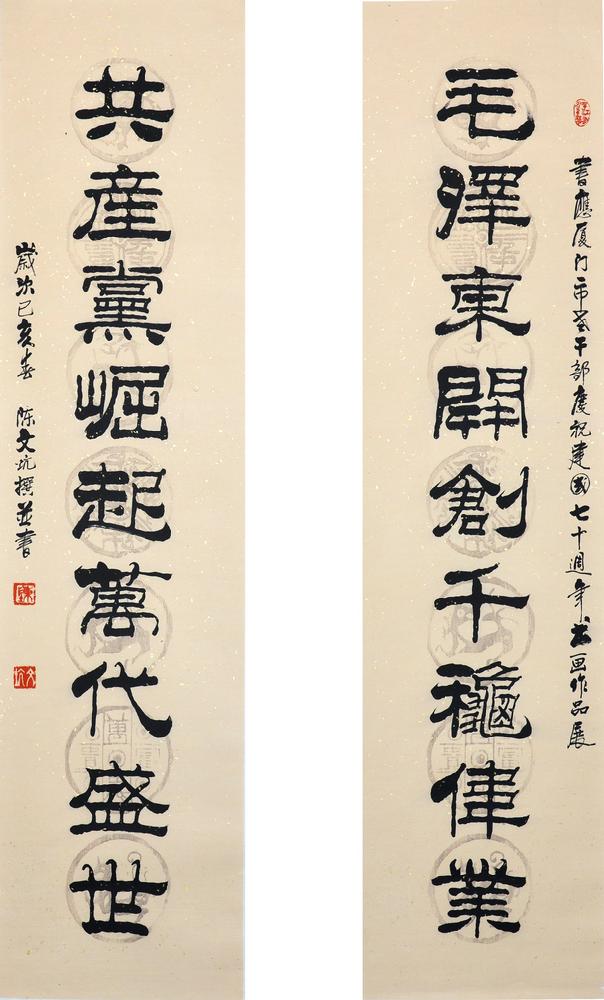 書應厦门市老干部慶祝建國七十週年书画作品展
毛澤東開創千穐偉業
共産黨崛起萬代盛世
歲次己亥春 陈文坑撰並書